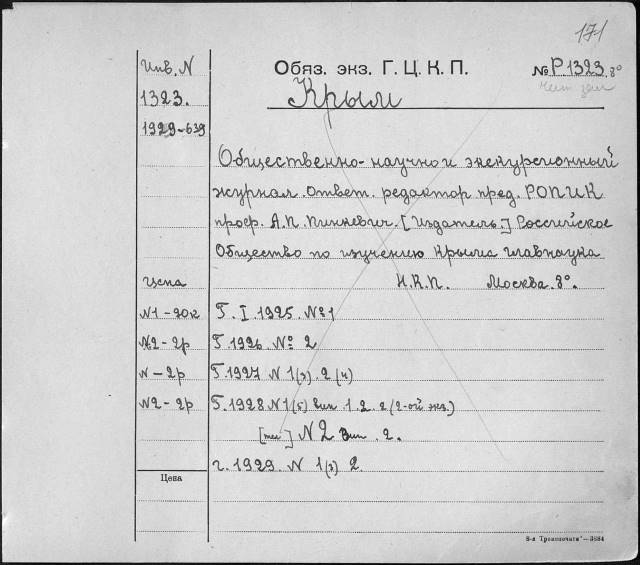 171
Инв. N
Обяз. экз. Г. Ц. К. П.
№ Р1323 8°
1323.
Крым
1929-639
Общественно-научно и экскурсионный
журнал. Ответ. редактор пред. РОПИК
проф. А.П. Пинкевич. [Издатель:] Российское
Общество по изучению Крыма главнаука
цена
Н.К.П. Москва. 8°.
N1-90к Г. I. 1925. №1
N2-2р Г 1926 № 2
N-2р Г 1927 N 1(3). 2(4)
N2-2р Г. 1928 N1(5) вып. 1. 2. 2 (2-ой экз.)
N2 вып. 2.
г. 1929. N 1(7) 2
Цена
3884